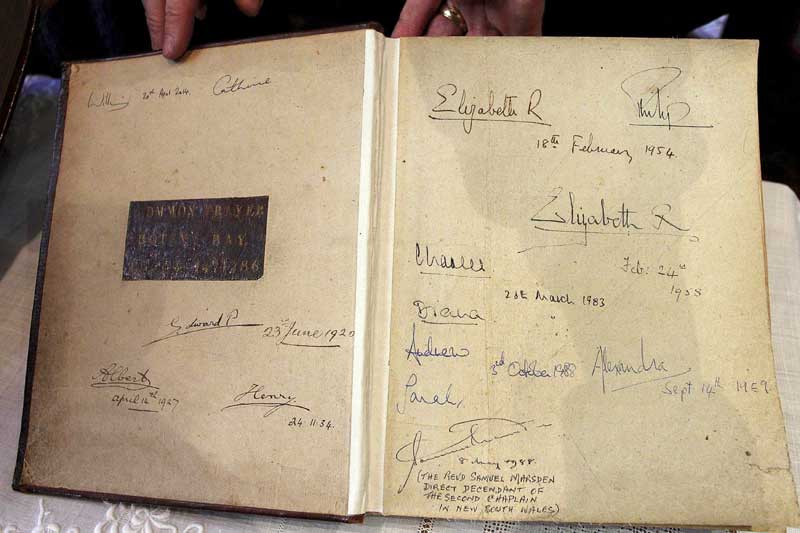 William 20th April 2014. Catherine
COMMON PRAYER
BOTANY BAY
Edward P 23rd June 1920
Albert
April 12th 1927
Henry
24.11.34.
Elizabeth R Philip
18th February 1954.
Elizabeth R
Feb: 24th
1958
Charles
28th March 1983
Diana
"
Andrew 3rd October 1988 Alexandra
Sept 14th
Sarah.
8 May 1988.
(THE REVD SAMUEL MARSDEN
DIRECT DECENDANT OF
THE SECOND CHAPLAIN
IN NEW SOUTH WALES)